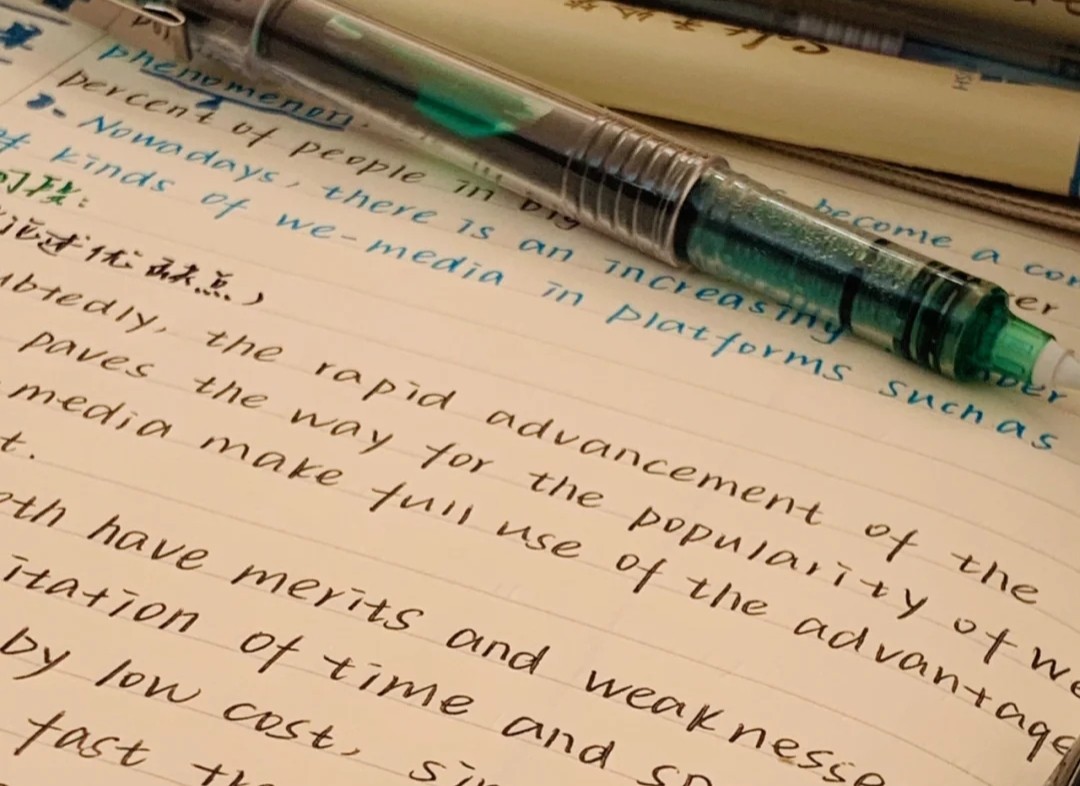 phenomenon.
percent of people in big
become a com
3. Nowadays, there is an increasing
kinds of we-media in platforms such as
论述优缺点,
ubtedly, the rapid advancement of the
paves the way for the popularity of we
media make full use of the advantage
t.
oth have merits and weaknesse
itation of time and sp
by low cost, sin
fast